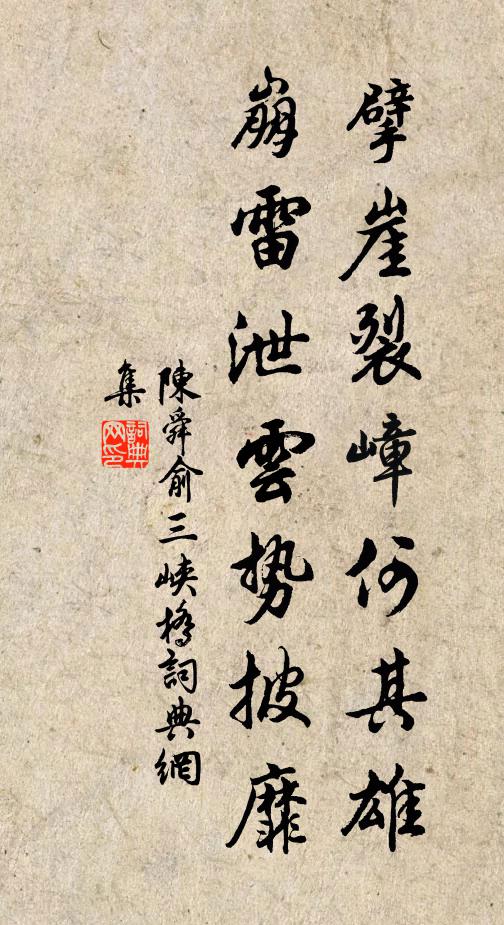 擘崖裂嶂何其雄
崩雷泄雲勢披靡
陳舜俞三峽橋詞典網
集
詞典
网印